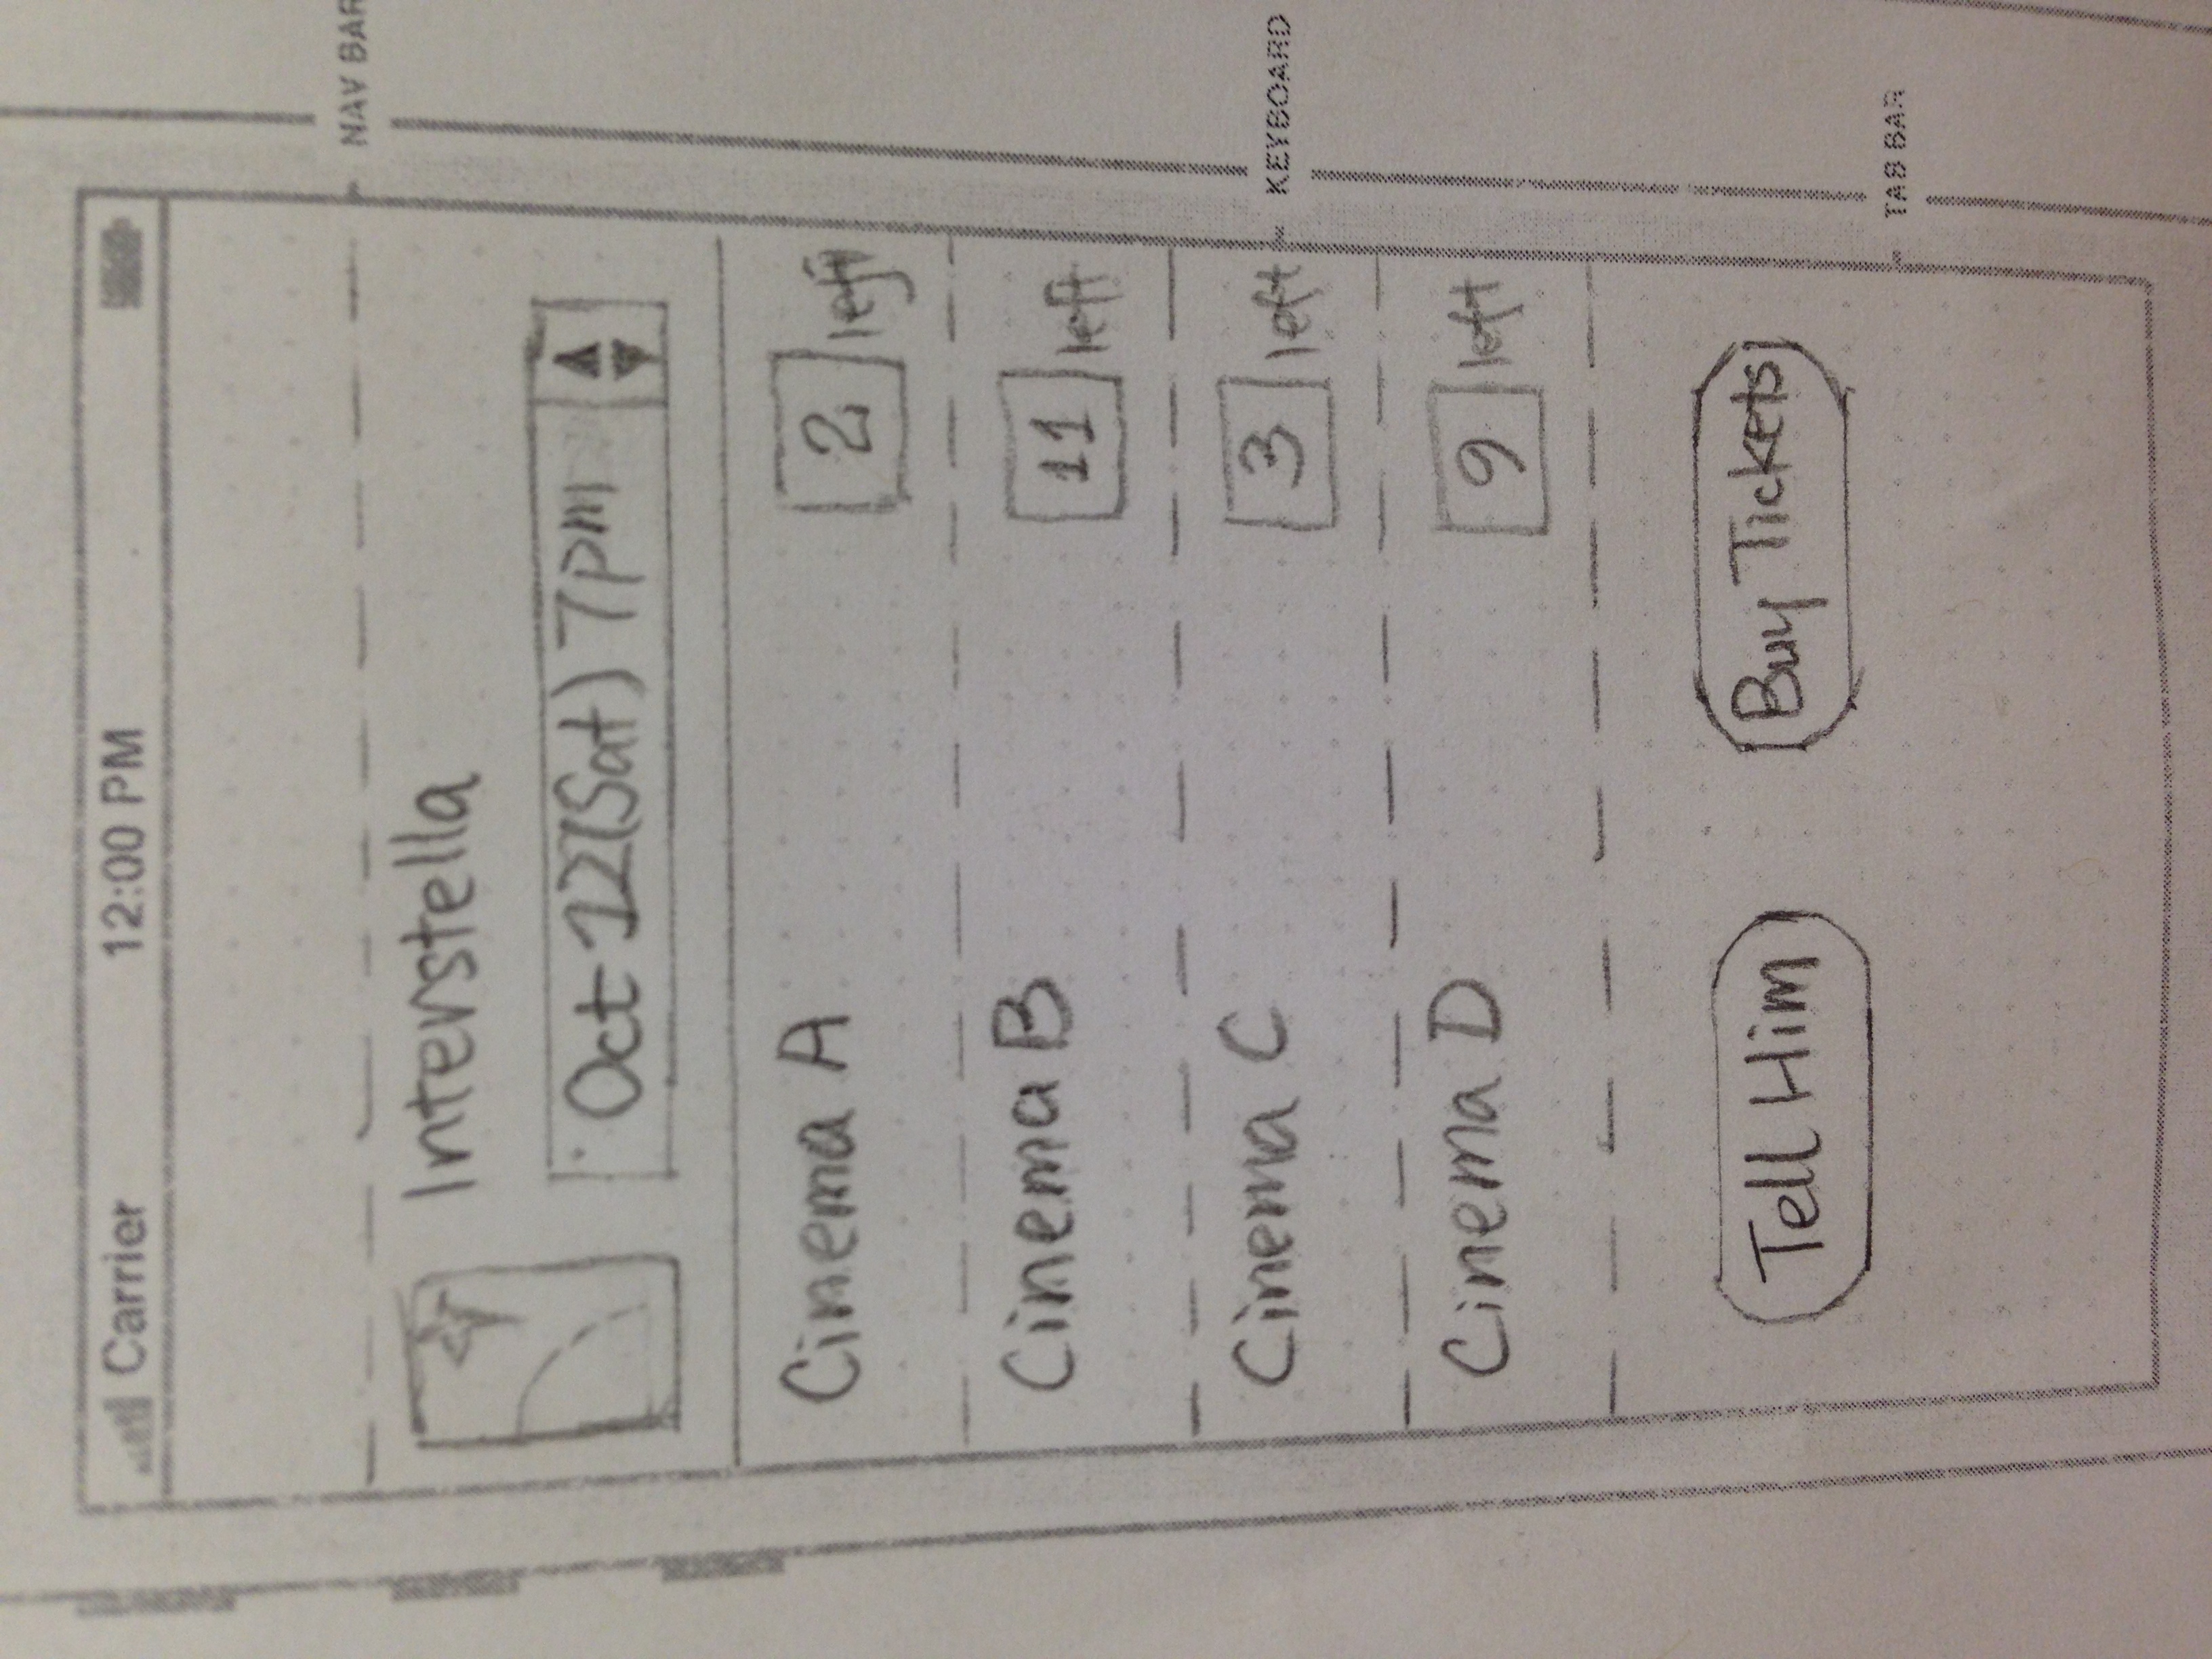 Carrier 12:00 PM
NAV BAR
Interstella
Oct 12(Sat) 7pm
Cinema A 2 left
Cinema B 11 left
Cinema C 3 left
KEYBOARD
Cinema D 9 left
Tell Him Buy Tickets
TAB BAR